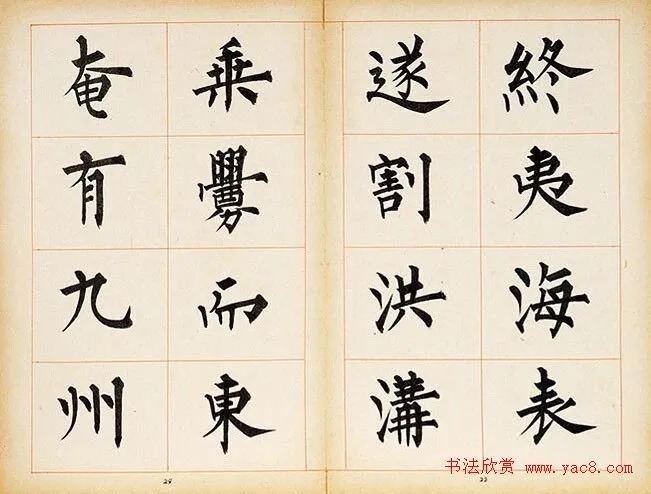 終夷海表
遂割洪溝
乘釁而東
奄有九州
书法欣赏 www.yac8.com